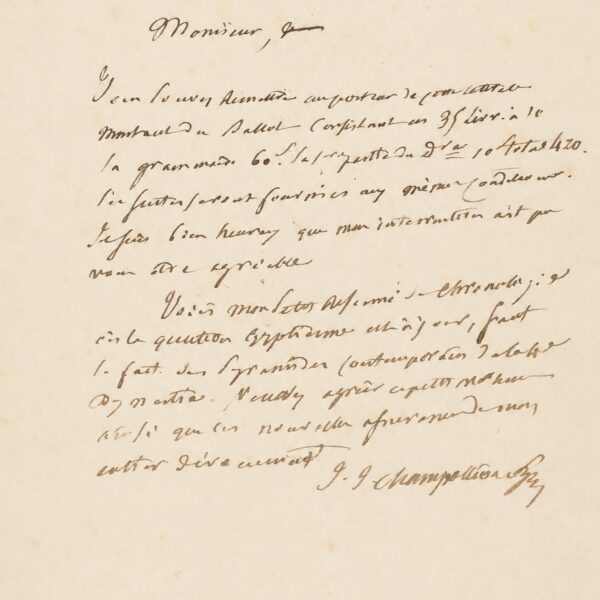 Monsieur,
remettre au porteur de cette lettre le
montant du Ballot Consistant en 35 livr. à 10
la grammaire 60 f. la 1re partie du D re 10 f. total 420.
les suites seront fournies aux mêmes Conditions.
Je suis bien heureux que mon intervention ait pu
vous être agréable
Voici mon Résumé de Chronologie
la question Egyptienne
le fait des Pyramides Contemporaines de la 4e
Dynastie. Veuillez agréer
ainsi que les nouvelles assurances de mon
entier dévouement
J. J. Champollion